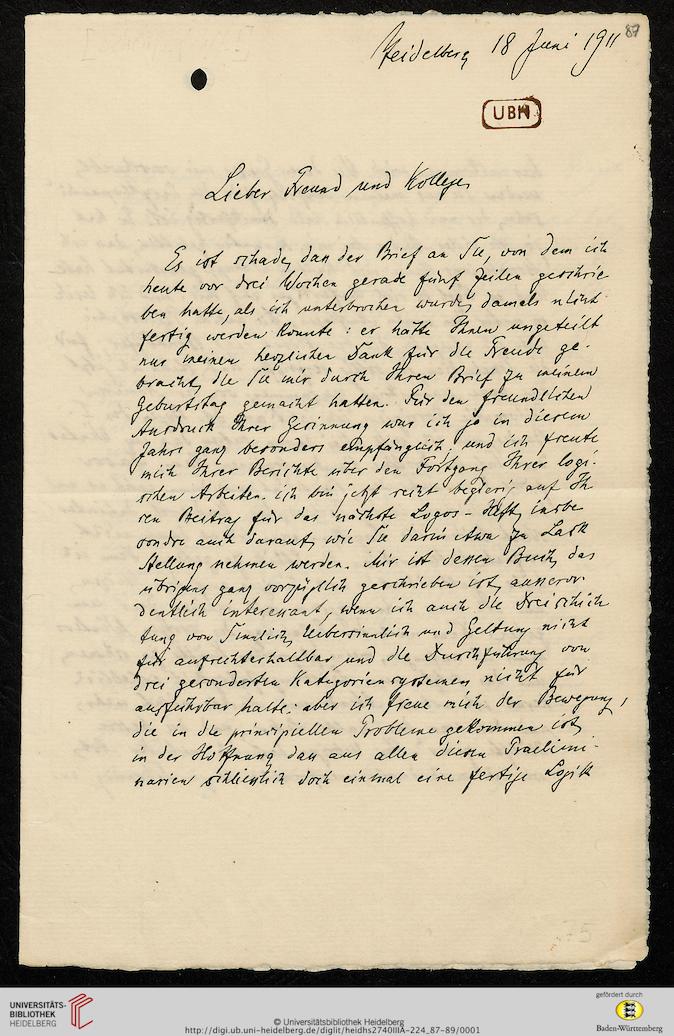 87
Heidelberg 18 Juni 1911
UBH
Lieber Freund und Kollege,
Es ist schade, dass der Brief an Sie, von dem ich
heute vor drei Wochen gerade fünf Zeilen geschrie
ben hatte, als ich unterbrochen wurde, damals nicht
fertig werden konnte: er hätte Ihnen ungeteilt
nur meinen herzlichen Dank für die Freude ge-
bracht, die Sie mir durch Ihren Brief zu meinem
Geburtstag gemacht hatten. Für den freundlichen
Ausdruck Ihrer Gesinnung war ich ja in diesem
Jahre ganz besonders empfänglich; und ich freute
mich Ihrer Berichte über den Fortgang Ihrer logi-
schen Arbeiten. ich bin jetzt recht begierig auf Ih
ren Beitrag für das nächste Logos-Heft, insbe
sondre auch darauf, wie Sie darin etwa zu Lask
Stellung nehmen werden. Mir ist dessen Buch, das
übrigens ganz vorzüglich geschrieben ist, ausseror-
dentlich interessant, wenn ich auch die Dreischich
tung von Sinnlich, Uebersinnlich und Geltung nicht
für aufrechterhaltbar und die Durchführung von
drei gesonderten Kategoriensystemen nicht für
ausführbar halte: aber ich freue mich der Bewegung,
die in die prinzipiellen Probleme gekommen ist,
in der Hoffnung dass aus allen diesen Praelimi-
narien schliesslich doch einmal eine fertige Logik
75
UNIVERSITÄTS-
BIBLIOTHEK
HEIDELBERG
© Universitätsbibliothek Heidelberg
http://digi.ub.uni-heidelberg.de/diglit/heidhs2740IIIA-224_87-89/0001
gefördert durch
Baden-Württemberg